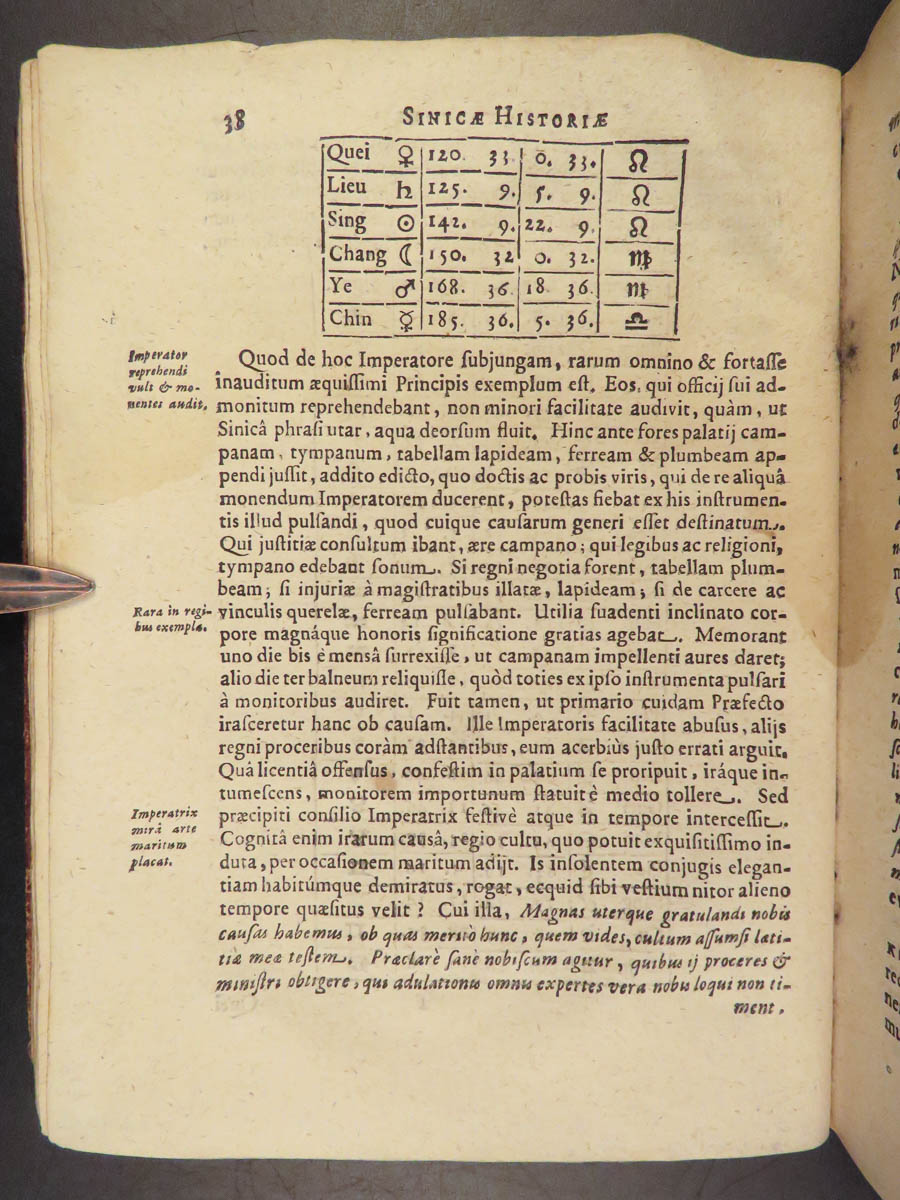 38 SINICÆ HISTORIÆ
Quei ♀ 120. 33 0. 33. ♌
Lieu ♄ 125. 9. 5. 9. ♌
Sing ☉ 142. 9. 22. 9. ♌
Chang ☾ 150. 32 0. 32. ♍
Ye ♂ 168. 36. 18 36. ♍
Chin ☿ 185. 36. 5. 36. ♎
Imperator
reprehendi
vult & mo-
nentes audit.
Quod de hoc Imperatore ſubjungam, rarum omnino & fortaſſe
inauditum æquiſſimi Principis exemplum eſt. Eos, qui officij ſui ad-
monitum reprehendebant, non minori facilitate audivit, quàm, ut
Sinicâ phraſi utar, aqua deorſum fluit. Hinc ante fores palatij cam-
panam, tympanum, tabellam lapideam, ferream & plumbeam ap-
pendi juſſit, addito edicto, quo doctis ac probis viris, qui de re aliquâ
monendum Imperatorem ducerent, poteſtas fiebat ex his inſtrumen-
tis illud pulſandi, quod cuique cauſarum generi eſſet deſtinatum.
Qui juſtitiæ conſultum ibant, ære campano; qui legibus ac religioni,
tympano edebant ſonum. Si regni negotia forent, tabellam plum-
beam; ſi injuriæ à magiſtratibus illatæ, lapideam; ſi de carcere ac
Rara in regi-
bus exempla.
vinculis querelæ, ferream pulſabant. Utilia ſuadenti inclinato cor-
pore magnáque honoris ſignificatione gratias agebat. Memorant
uno die bis è menſâ ſurrexiſſe, ut campanam impellenti aures daret;
alio die ter balneum reliquiſſe, quòd toties ex ipſo inſtrumenta pulſari
à monitoribus audiret. Fuit tamen, ut primario cuidam Præfecto
iraſceretur hanc ob cauſam. Ille Imperatoris facilitate abuſus, alijs
regni proceribus coràm adſtantibus, eum acerbiùs juſto errati arguit.
Quâ licentiâ offenſus, confeſtim in palatium ſe proripuit, iráque in-
tumeſcens, monitorem importunum ſtatuit è medio tollere. Sed
Imperatrix
mirâ arte
maritum
placat.
præcipiti conſilio Imperatrix feſtivè atque in tempore interceſſit.
Cognitâ enim irarum cauſâ, regio cultu, quo potuit exquiſitiſſimo in-
duta, per occaſionem maritum adijt. Is inſolentem conjugis elegan-
tiam habitúmque demiratus, rogat, ecquid ſibi veſtium nitor alieno
tempore quæſitus velit? Cui illa, Magnas uterque gratulandi nobis
cauſas habemus, ob quas meritò hunc, quem vides, cultum aſſumſi læti-
tiæ meæ teſtem. Præclarè ſanè nobiſcum agitur, quibus ij proceres &
miniſtri obtigere, qui adulationis omnis expertes vera nobis loqui non ti-
ment.